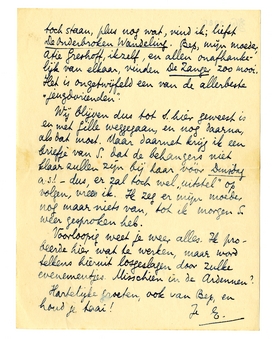 toch staan, plus nog wat, vind ik; liefst
De onderbroken Wandeling. Bep, mijn moeder,
Atie Greshoff, ikzelf, en allen onafhanke-
lijk van elkaar, vinden De Lange zoo mooi.
Het is ongetwijfeld een van de allerbeste
"jeugdvrienden".
Wij blijven dus tot S. hier geweest is
en met Jille weggegaan, en nog daarna,
als dat moet. Maar daarnet krijg ik een
briefje van S. dat de behangers niet
klaar zullen zijn bij haar vóór Dinsdag
a.s.! - dus, er zal toch wel "uitstel" op
volgen, vrees ik. Ik zeg er mijn moeder
nog maar niets van, tot ik morgen S.
weer gesproken heb.
Voorloopig weet je weer alles. Ik pro-
beerde hier wat te werken, maar word
telkens hieruit losgeslagen door zulke
evenementjes. Misschien in de Ardennen?
Hartelijke groeten, ook van Bep, en
houd je taai!
Je E.